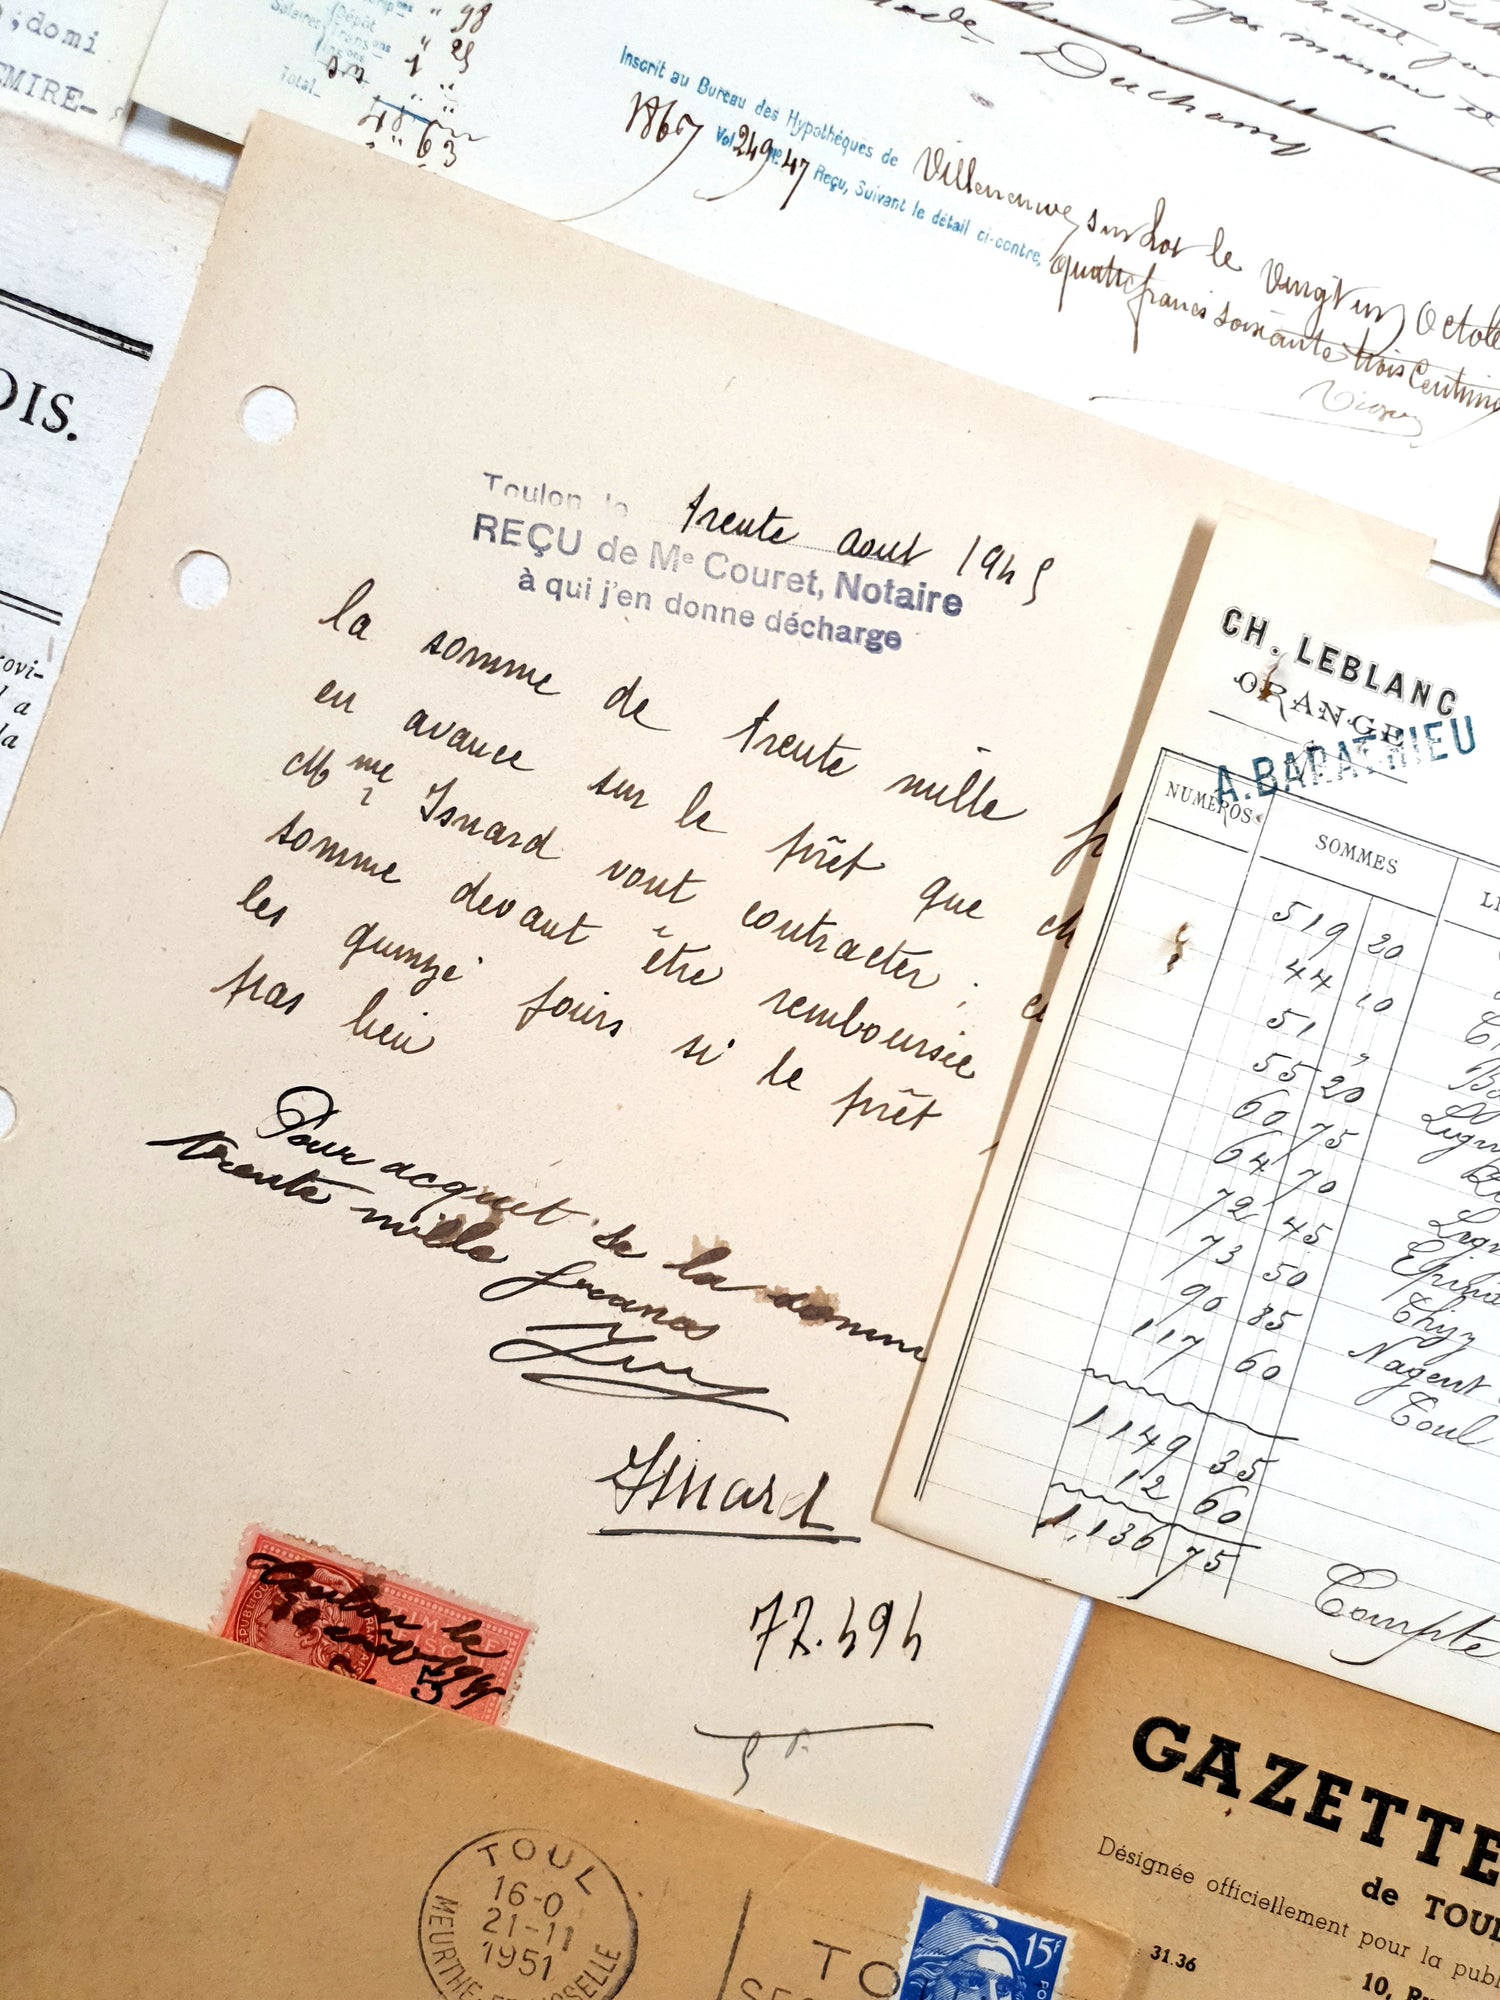 ;domi
EMIRE-
Dépôt
Salaires
Total
98
25
1
63
Duchamp
Inscrit au Bureau des Hypothéques de Villeneuve sur Lot le Vingt un Octob
1867 Vol 249 Nº 47 Reçu, Suivant le détail ci-contre, quatre francs soixante trois Centim
OIS.
ovi-
a
la
Toulon le trente aout 1945
REÇU de Mᵉ Couret, Notaire
à qui j'en donne décharge
la somme de trente mille fr
en avance sur le prêt que
Mme Isnard vont contracter ; c
somme devant être remboursée
les quinze jours si le prêt
pas lieu
Pour acquet de la somme
trente mille francs
Isnard
72.494
Toulon le
5
CH. LEBLANC
ORANGE
A. BARATHIEU
NUMÉROS
SOMMES
LI
519 20
44 10
51 "
55 20
60 75
64 70
72 45
73 50
90 85
117 60
Nogent
Toul
1149 35
12 60
1,136 75
Compte
GAZETTE
de TOUL
Désignée officiellement pour la publ
31.36
10, Ru
TOUL
16-0
21-11
1951
MEURTHE-ET-MOSELLE
TO
15F